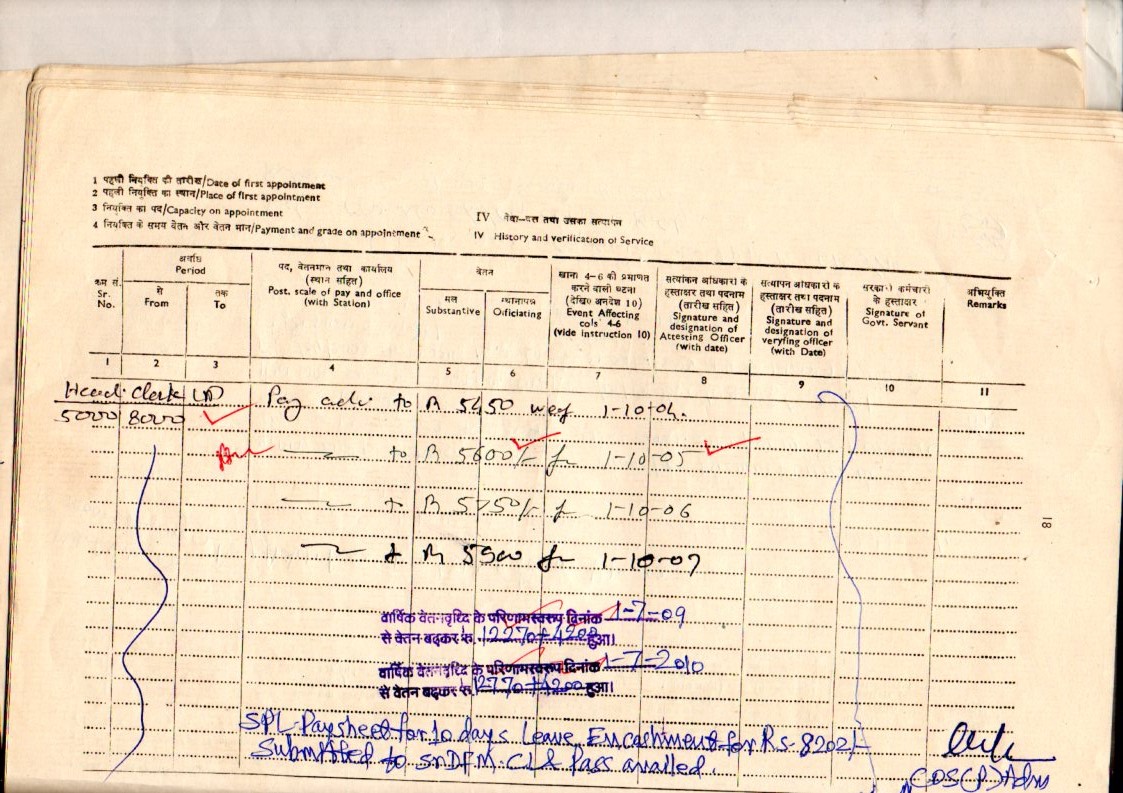 1 पहली नियुक्ति की तारीख/Date of first appointment
2 पहली नियुक्ति का स्थान/Place of first appointment
3 नियुक्ति का पद/Capacity on appointment
4 नियुक्ति के समय वेतन और वेतन मान/Payment and grade on appointment
IV सेवा-वृत्त तथा उसका सत्यापन
IV History and verification of Service
क्रम सं.
Sr.
No.
अवधि
Period
से
From
तक
To
पद, वेतनमान तथा कार्यालय
(स्थान सहित)
Post. scale of pay and office
(with Station)
वेतन
मूल
Substantive
स्थानापन्न
Officiating
खाना 4-6 को प्रभावित
करने वाली घटना
(देखिए अनुदेश 10)
Event Affecting
cols 4-6
(vide instruction 10)
सत्यांकन अधिकारी के
हस्ताक्षर तथा पदनाम
(तारीख सहित)
Signature and
designation of
Attesting Officer
(with date)
सत्यापन अधिकारी के
हस्ताक्षर तथा पदनाम
(तारीख सहित)
Signature and
designation of
veryfing officer
(with Date)
सरकारी कर्मचारी
के हस्ताक्षर
Signature of
Govt. Servant
अभियुक्ति
Remarks
1 2 3 4 5 6 7 8 9 10 11
Head Clerk
Pay adv to R 5450 wef 1-10-04.
5000 8000
to R 5600/- 1-10-05
R 5750/- 1-10-06
R 5900 1-10-07
18
वार्षिक वेतनवृध्दि के परिणामस्वरूप दिनांक 1-7-09
से वेतन बढ़कर रु. 12270+4200 हुआ।
वार्षिक वेतनवृध्दि के परिणामस्वरूप दिनांक 1-7-2010
से वेतन बढ़कर रु. 12770+4200 हुआ।
SPL Paysheet for 10 days Leave Encashment for Rs. 8202/-
Submitted to SrDFM.CLA Pass availed.
COS(P)Adm